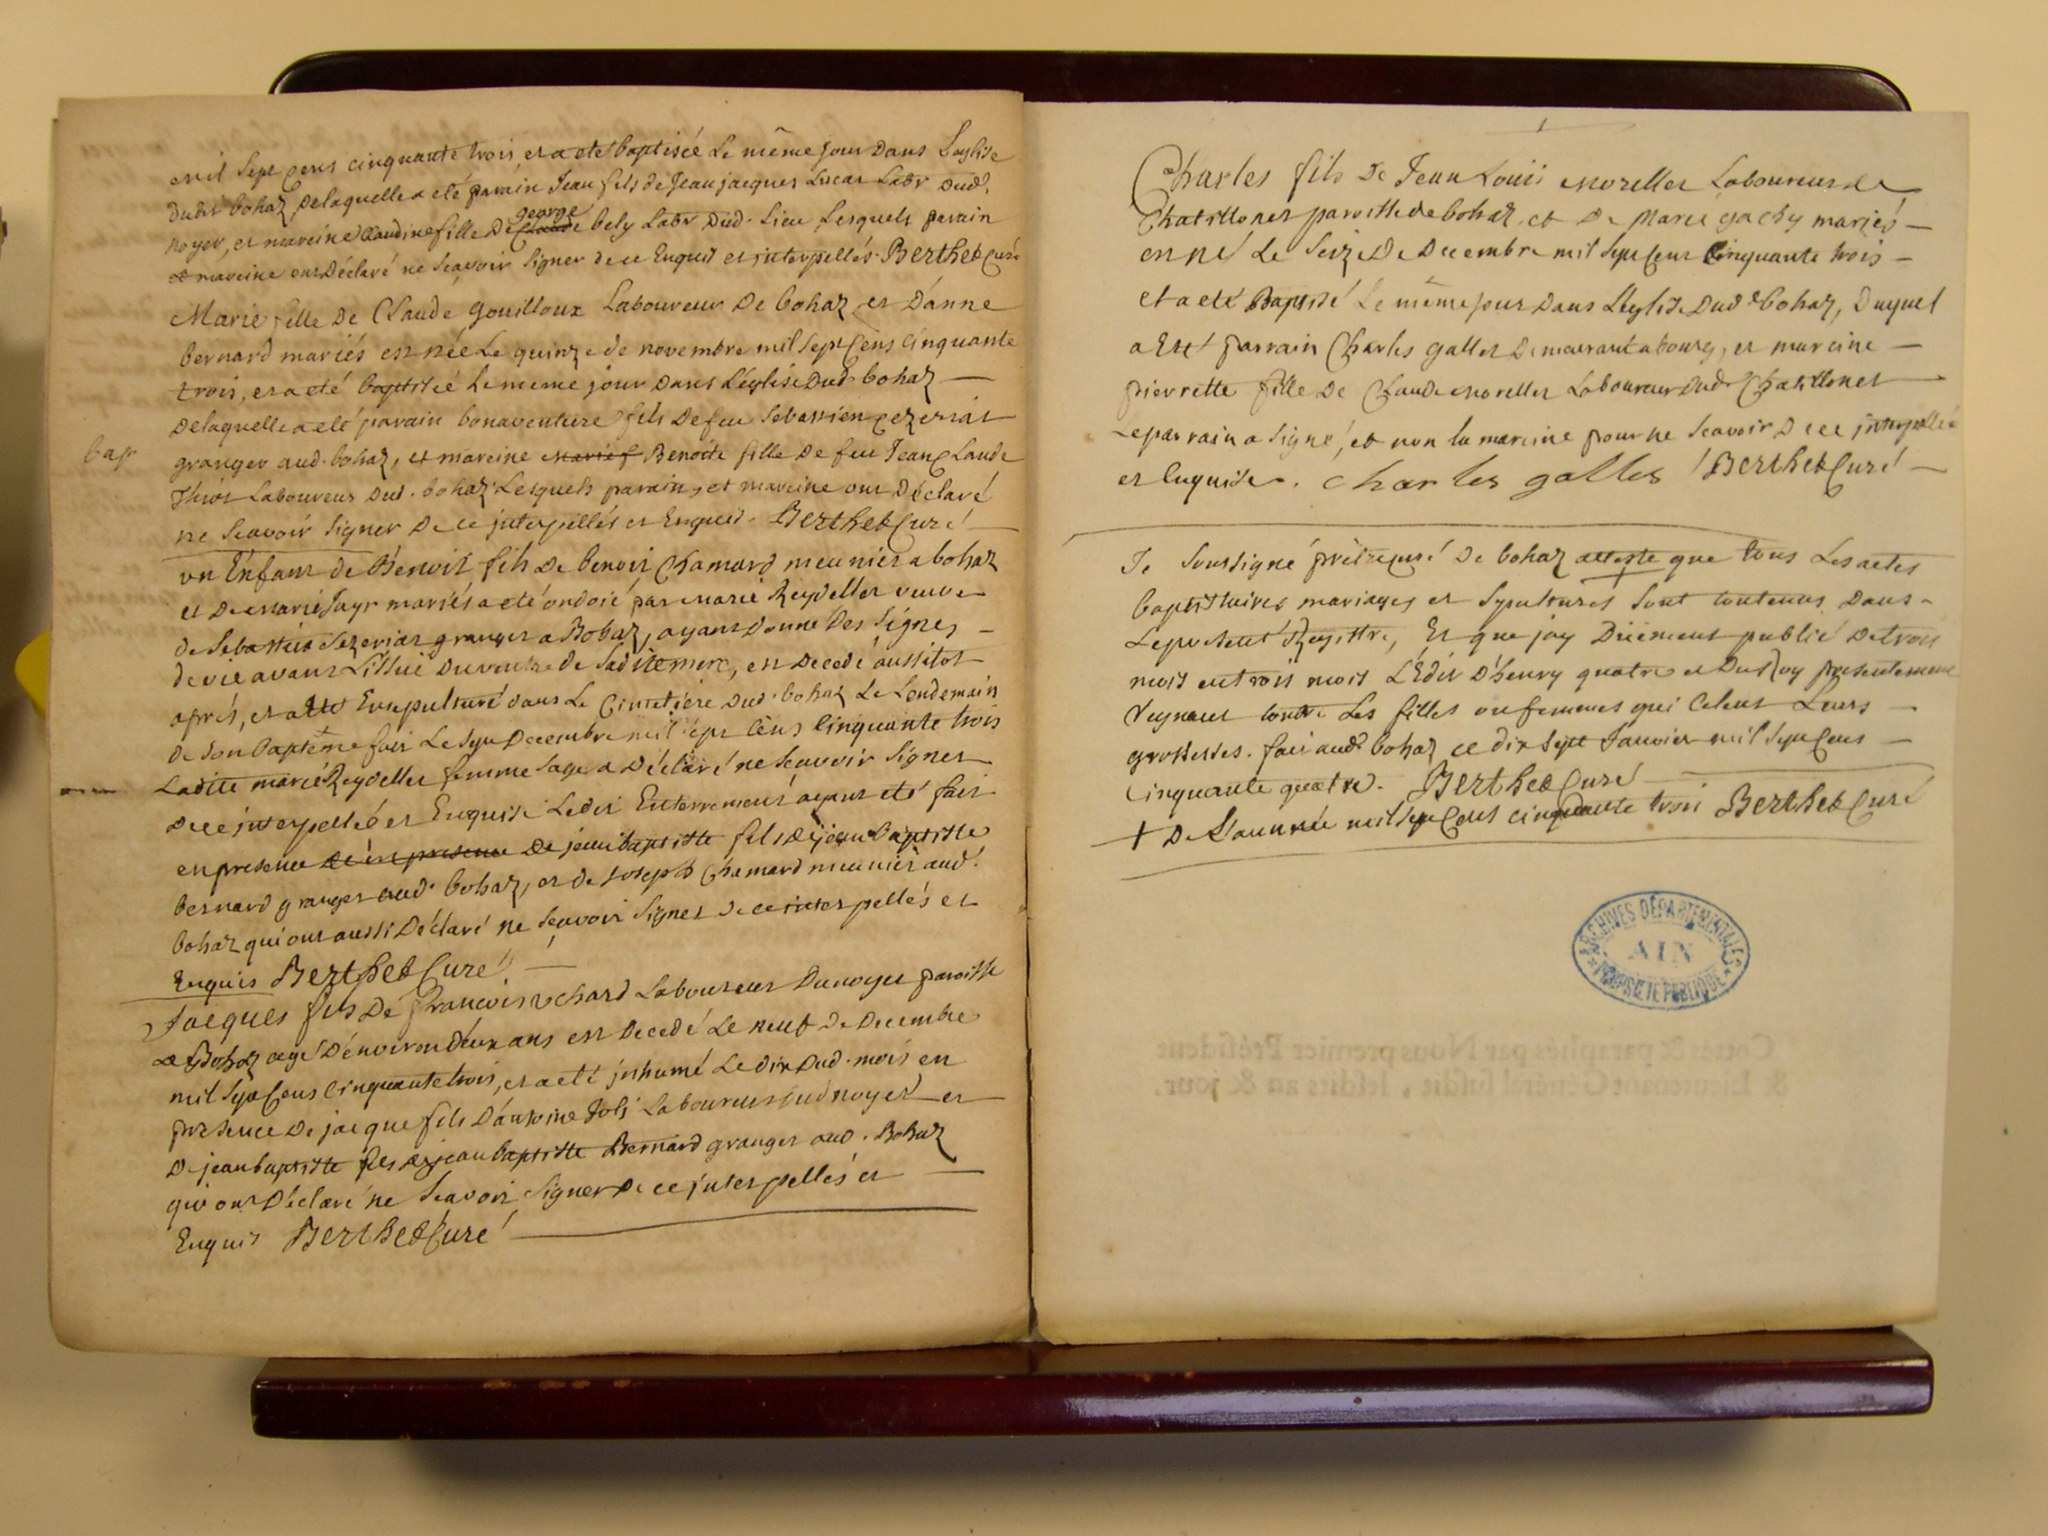 mil sept cens cinquante trois, et a eté baptisée Le même jour Dans L'eglise
dudit bohaz, De laquelle a eté parain Jean fils de Jean jacques Lucas Labr Dud.
noyer, et mareine Claudine fille De Claude george bely Labr Dud. Lieu Lesquels parain
et mareine ont Déclaré ne Scavoir Signer de ce Enquis et interpellés. Berthet Curé
Marie fille De Claude gouilloux Laboureur De bohaz et D'anne
bernard mariés est née Le quinze de novembre mil Sept Cens Cinquante
trois, et a eté baptisée Le meme jour Dans L'églisé Dud. bohaz
De laquelle a eté parain bonaventure fils De feu Sebastien Cezeriat
bap
granger aud. bohaz, et mareine Benoite fille De feu Jean Claude
Laboureur Dud. bohaz Lesquels parain, et mareine ont Déclaré
ne Scavoir Signer De ce interpellés et Enquis. Berthet Curé
un Enfant de Benoit fils De benoit Chamard meunier a bohaz
et De marie mariés a eté ondoié par marie Reydellet veuve
de Sebastien Sezeriat granger a Bohaz, ayant Donné Des Signes
de vie avant L'issue Du ventre de Sadite mere, est Decedé aussitot
aprés, et a eté Ensepulturé dans Le Cimetiére Dud. bohaz Le Lendemain
de Son baptême fait Le Sept Decembre mil sept Cens Cinquante trois
Ladite marie Reydellet femme Sage a Déclaré ne Scavoir Signer
De ce interpellée et Enquise Ledit Enterrement ayant eté fait
en presence de en presence De jean baptiste fils De jean Baptiste
bernard granger aud. bohaz, et de Joseph Chamard meunier aud.
bohaz qui ont aussi Déclaré ne Scavoir Signer De ce interpellés et
Enquis Berthet Curé
Jacques fils De francois Laboureur Du noyer paroisse
de Bohaz agé D'environ deux ans est Decedé Le neuf De Decembre
mil Sept Cens Cinquante trois, et a eté inhumé Le dix Dud. mois en
presence De jacque fils D'antoine Joli Laboureur dud noyer et
De jean baptiste fils De jean baptiste Bernard granger aud. Bohaz
qui ont Déclaré ne Scavoir Signer De ce interpellés et
Enquis Berthet Curé
Charles fils De Jean Louis morellet Laboureur de
Chatillonet paroisse de bohaz, et De marie gachy mariés
est né Le Seize De Decembre mil Sept Cens Cinquante trois
et a eté Baptisé Le même jour Dans L'eglise Dud. bohaz, Duquel
a Eté parrain Charles gallet Demeurant a bourg, et mareine
pierrette fille De Claude morellet Laboureur Dud. Chatillonet
Le parrain a Signé, et non la mareine pour ne Scavoir De ce interpellée
et Enquise. Charles galles Berthet Curé
Je Soussigné prêtre Curé De bohaz atteste que tous Les actes
baptistaires mariages et Sepultures Sont Contenus Dans
Le present Registre, Et que j'ay Duement publié De trois
mois en trois mois L'Edit D'henry quatre et Du Roy presentement
Regnant Contre Les filles ou femmes qui Celent Leurs
grossesses. fait aud. bohaz ce dix Sept Janvier mil Sept Cens
Cinquante quatre. Berthet Curé
+ De L'année mil Sept Cens cinquante trois Berthet Curé
ARCHIVES DÉPARTEMENTALES
AIN
PROPRIÉTÉ PUBLIQUE
Cottée & paraphée par Nous premier Président
& Lieutenant Général susdit, lesdits an & jour.